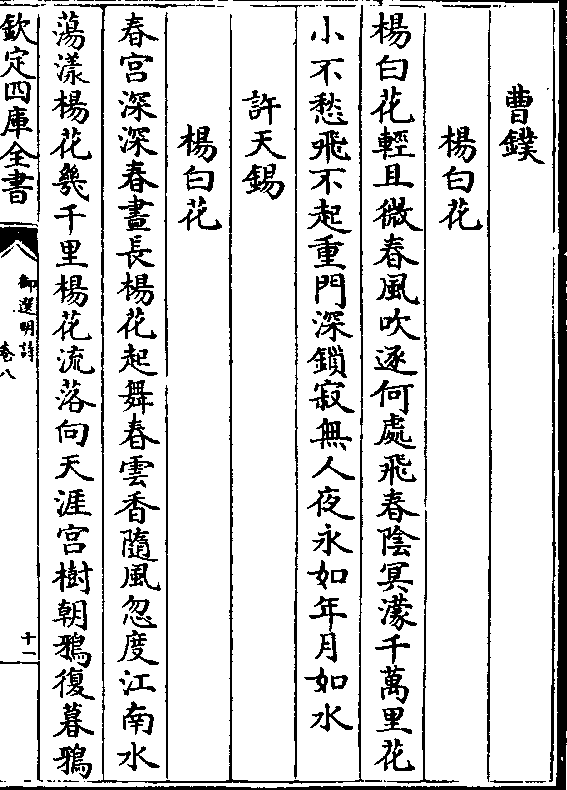 曹鏷
楊白花
楊白花輕且微春風吹逐何處飛春陰冥濛千萬里花
小不愁飛不起重門深鎖寂無人夜永如年月如水
許天錫
楊白花
春宫深深春晝長楊花起舞春雲香隨風忽度江南水
蕩漾楊花幾千里楊花流落向天涯宫樹朝鴉復暮鴉
欽定四庫全書
御選明詩
卷八
十一